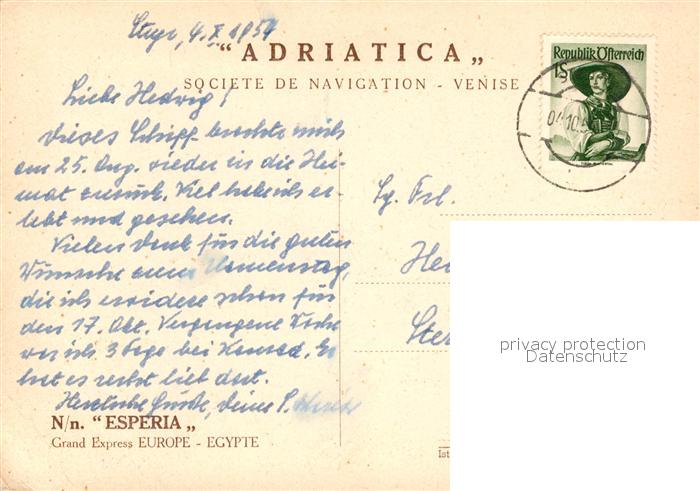 Steyr, 4. X 1954
"ADRIATICA„
SOCIETE DE NAVIGATION - VENISE
Republik Österreich
1S
Liebe Hedwig!
Dieses Schiff brachte mich
am 25. Aug. wieder in die Hei-
mat zurück. Viel habe ich er-
lebt und gesehen.
Vielen Dank für die guten
Wünsche zum Namenstag,
die ich erwidere schon für
den 17. Okt. Vergangene Woche
war ich 3 Tage bei Konrad. Er
hat es recht lieb dort.
Herzliche Grüße, deine S.
Sg. Frl.
He
Ste
N/n. "ESPERIA„
Grand Express EUROPE - EGYPTE
Ist
privacy protection
Datenschutz